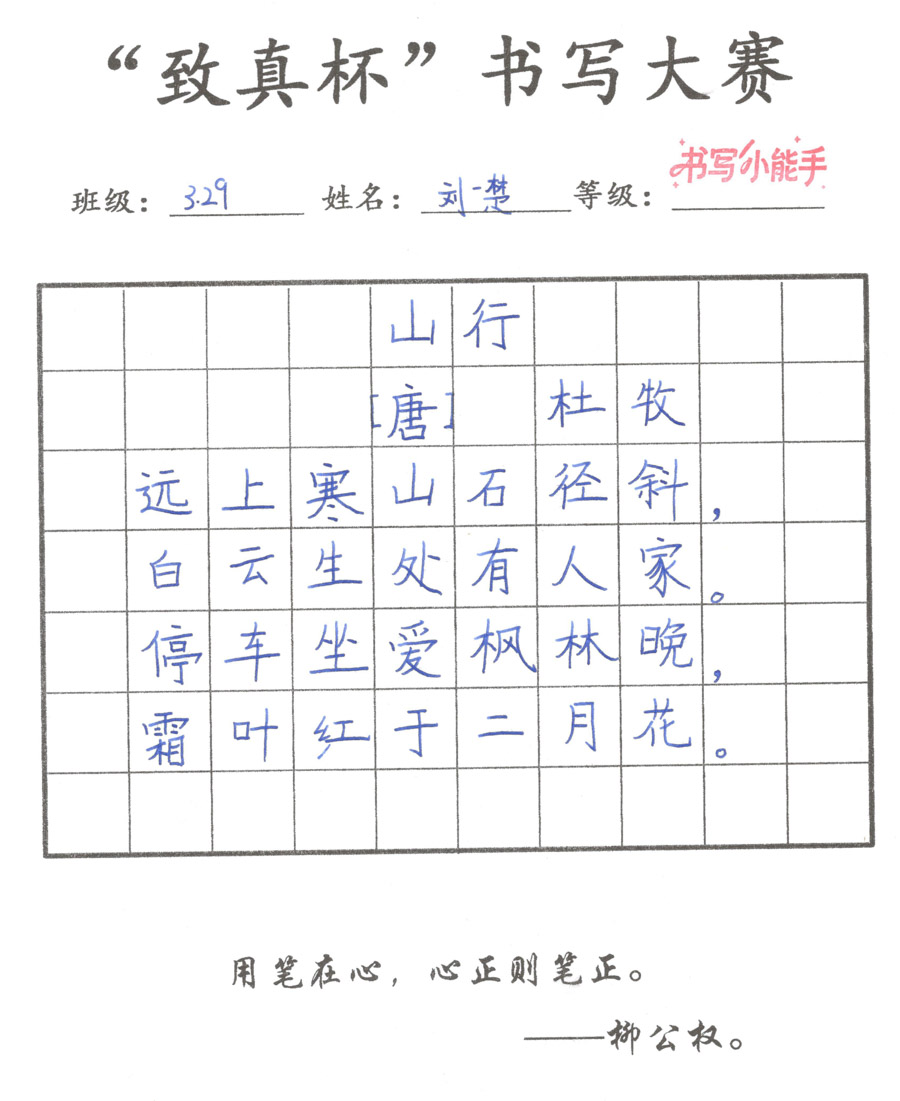 “致真杯”书写大赛
书写小能手
班级：3.29 姓名：刘一楚 等级：
山行
[唐] 杜牧
远上寒山石径斜，
白云生处有人家。
停车坐爱枫林晚，
霜叶红于二月花。
用笔在心，心正则笔正。
——柳公权。